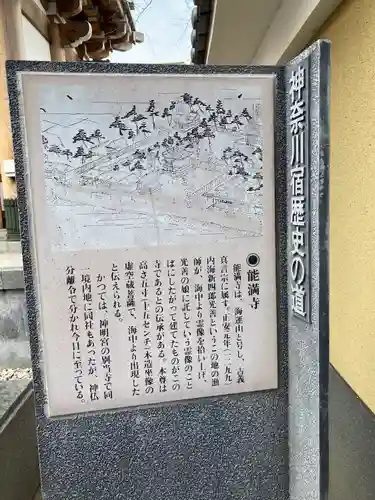 神奈川宿歴史の道
●能満寺
能満寺は、海運山と号し、古義
真言宗に属す。正安元年(一二九九)
内海新四郎光善というこの地の漁
師が、海中より霊像を拾い上げ、
光善の娘に託していう霊像のこと
ばにしたがって建てたものがこの
寺であるとの伝承がある。本尊は
高さ五寸(十五センチ)木造坐像の
虚空蔵菩薩で、海中より出現した
と伝えられる。
かつては、神明宮の別当寺で同
一境内地に同社もあったが、神仏
分離令で分かれ今日に至っている。